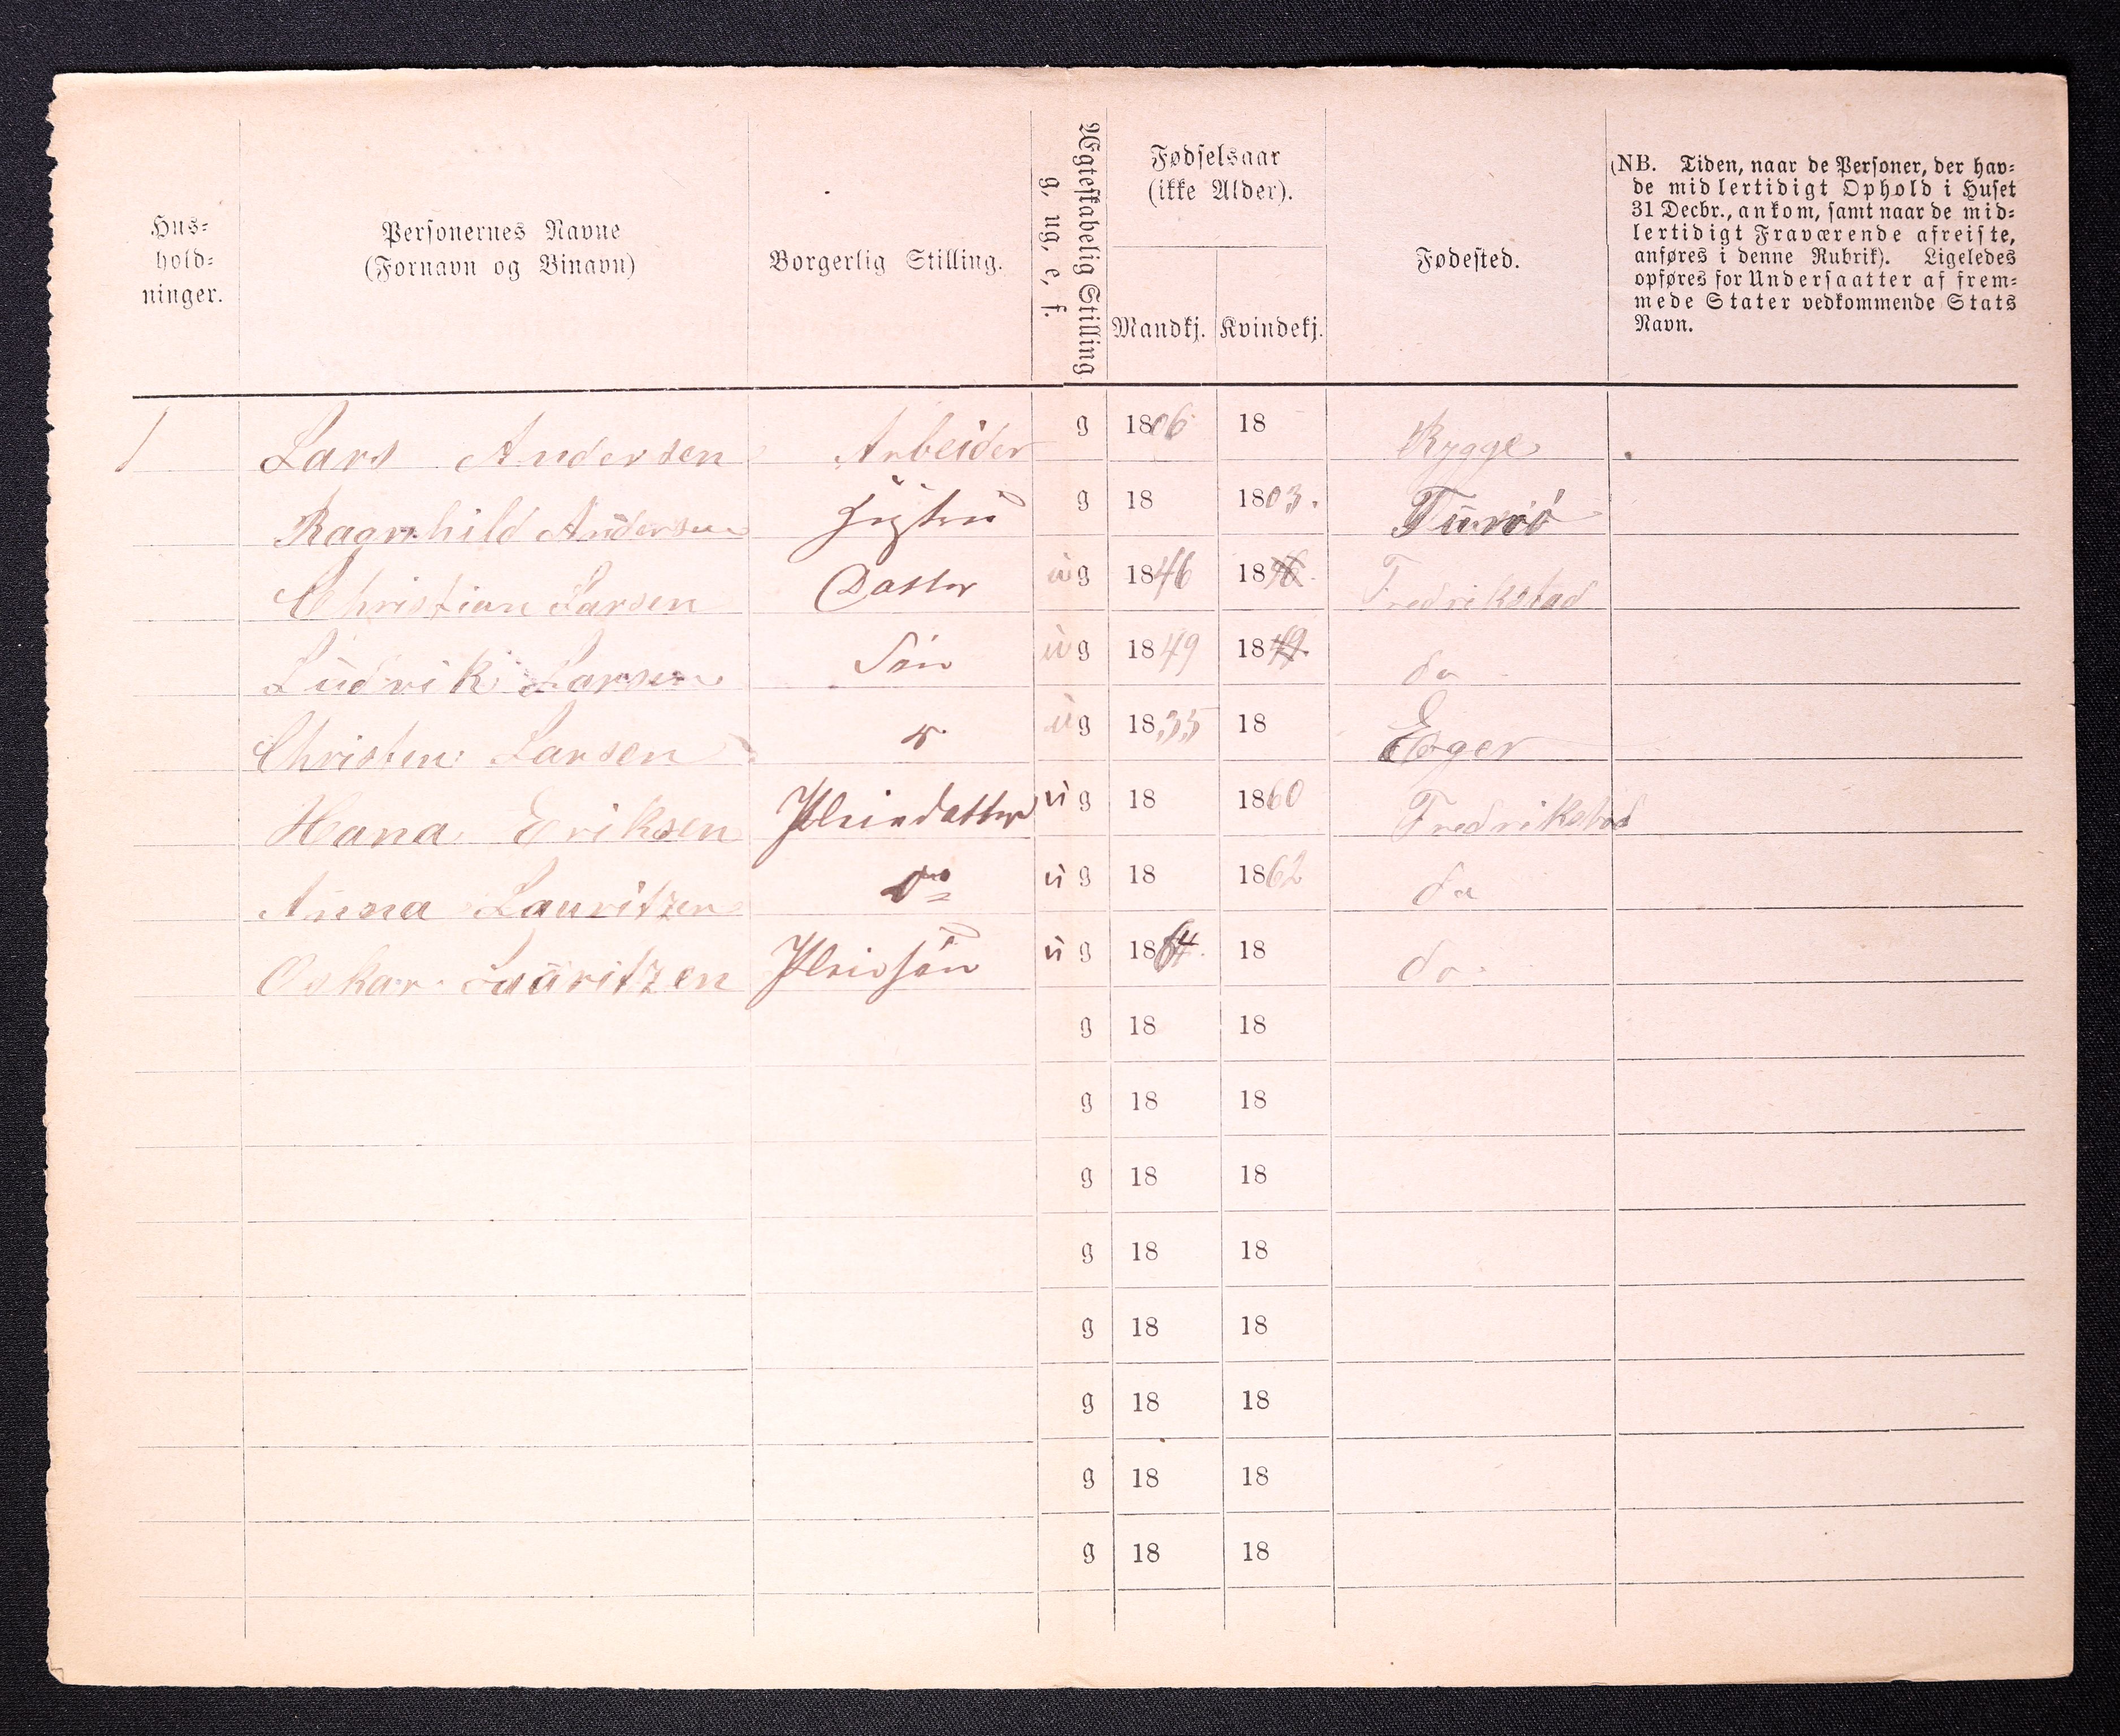 Hus-
hold-
ninger.
Personernes Navne
(Fornavn og Binavn)
Borgerlig Stilling.
Ægteskabelig Stilling
g, ug, e, f.
Fødselsaar
(ikke Alder).
Mandkj. Kvindekj.
Fødested.
(NB. Tiden, naar de Personer, der hav-
de midlertidigt Ophold i Huset
31 Decbr., ankom, samt naar de mid-
lertidigt Fraværende afreiste,
anføres i denne Rubrik). Ligeledes
opføres for Undersaatter af frem-
mede Stater vedkommende Stats
Navn.
1 Lars Andersen Arbeider g 1806 18 Rygge
Ragnhild Andersen g 18 1803. Tunö
Christian Larsen Datter ug 1846 18 Fredrikstad
Ludvik Larsen Sön ug 1849 1849 do
Christen Larsen ug 1835 18 Eger
Hana Eriksen Pleiedatter ug 18 1860 Fredrikstad
Anna Lauritzen do ug 18 1862 do
Oskar Lauritzen Pleiesön ug 1864. 18 do
g 18 18
g 18 18
g 18 18
g 18 18
g 18 18
g 18 18
g 18 18
g 18 18